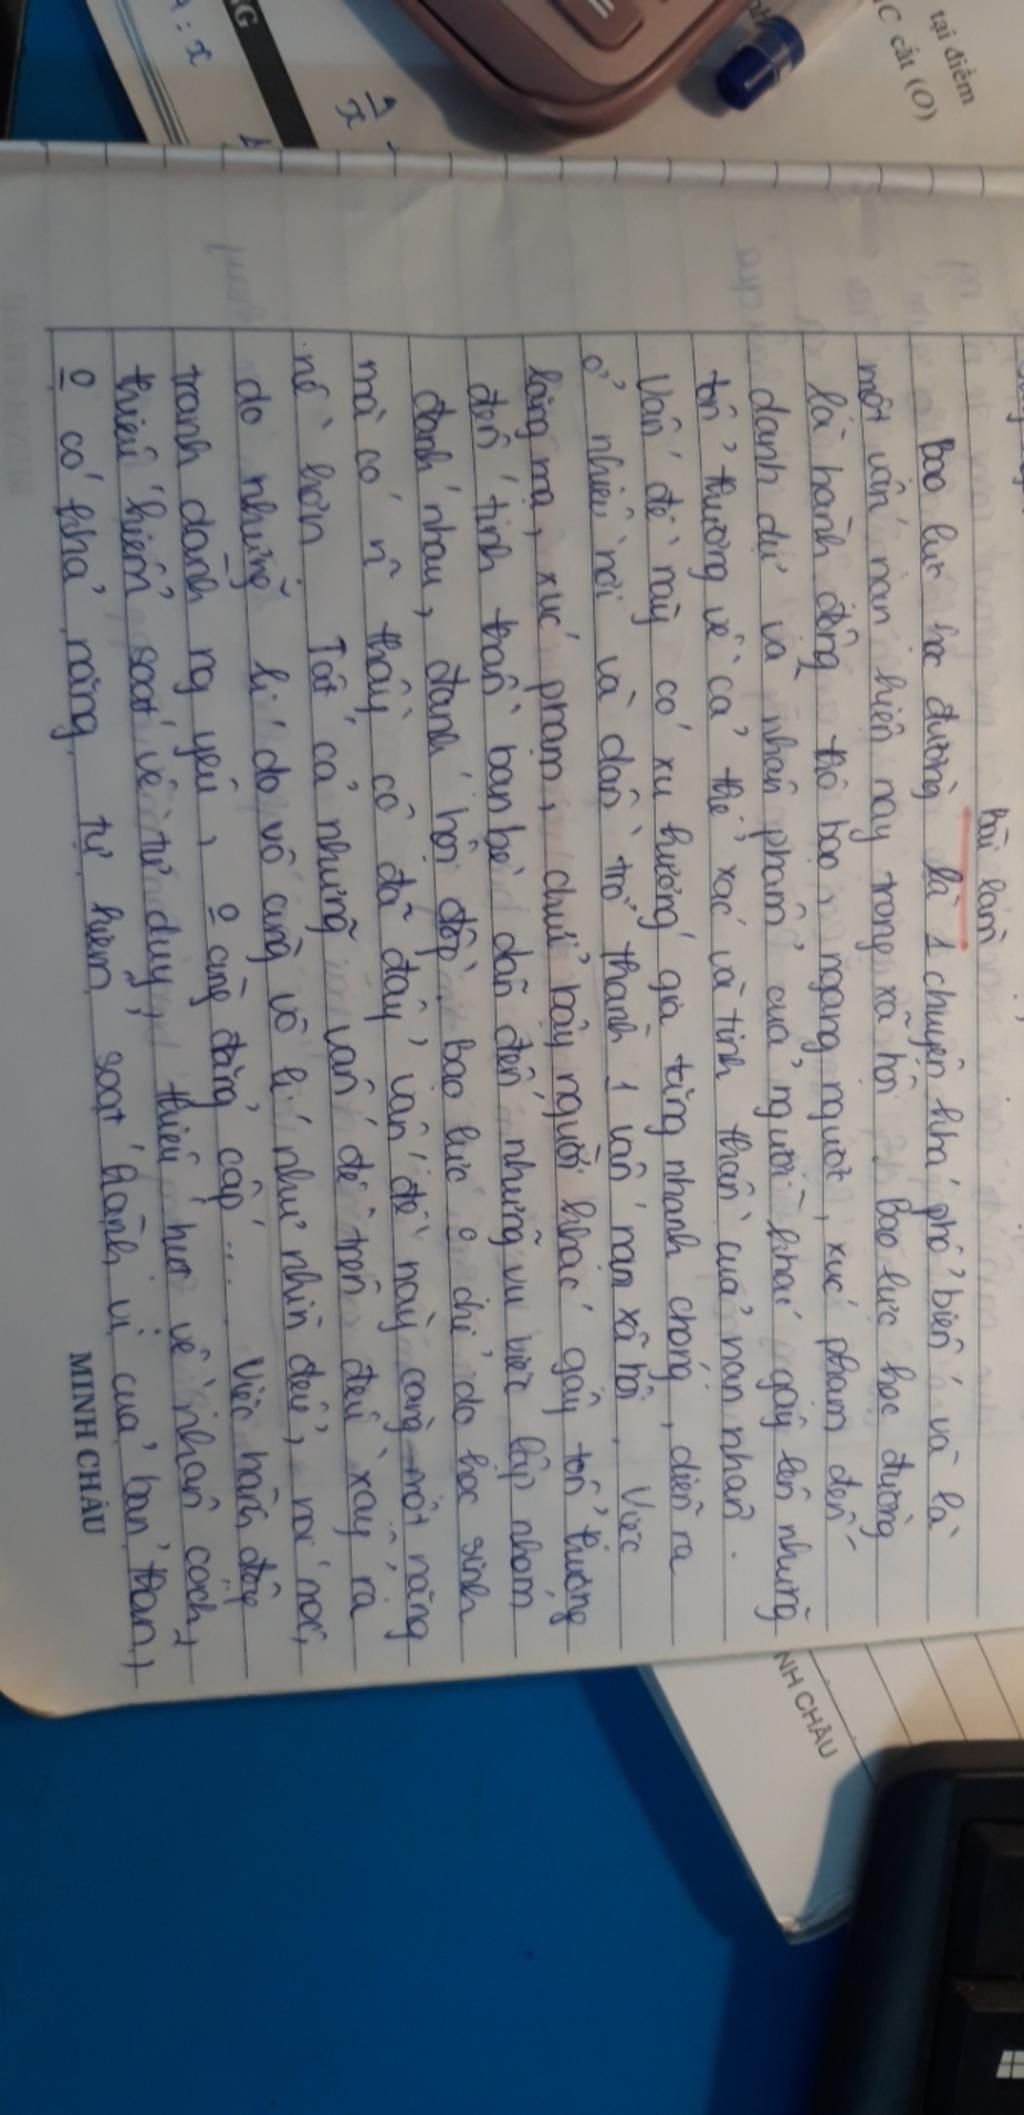 Bài làm
Bạo lực học đường là 1 chuyện khá phổ biến và là
một vấn nạn hiện nay trong xã hội. Bạo lực học đường
là hành động thô bạo, ngang ngược, xúc phạm đến
danh dự và nhân phẩm của người khác gây lên những
tổn thương về cả thể xác và tinh thần của nạn nhân.
Vấn đề này có xu hướng gia tăng nhanh chóng, diễn ra
ở nhiều nơi và dần trở thành 1 vấn nạn xã hội. Việc
lăng mạ, xúc phạm, chửi bậy người khác gây tổn thương
đến tinh thần bạn bè dẫn đến những vụ việc lập nhóm
đánh nhau, đánh hội đồng. Bạo lực o chỉ do học sinh
mà có n thầy cô đã đẩy vấn đề này càng một nặng
nề hơn. Tất cả những vấn đề trên đều xảy ra
do những lí do vô cùng vô lí như nhìn đểu, nói móc,
tranh dành ng yêu, o cùng đẳng cấp... Việc hành động
thiếu kiểm soát về tư duy, thiếu hụt về nhân cách,
o có khả năng tự kiểm soát hành vi của bản thân,
MINH CHÂU
NH CHÂU
tại điểm
C cắt (O)
NG